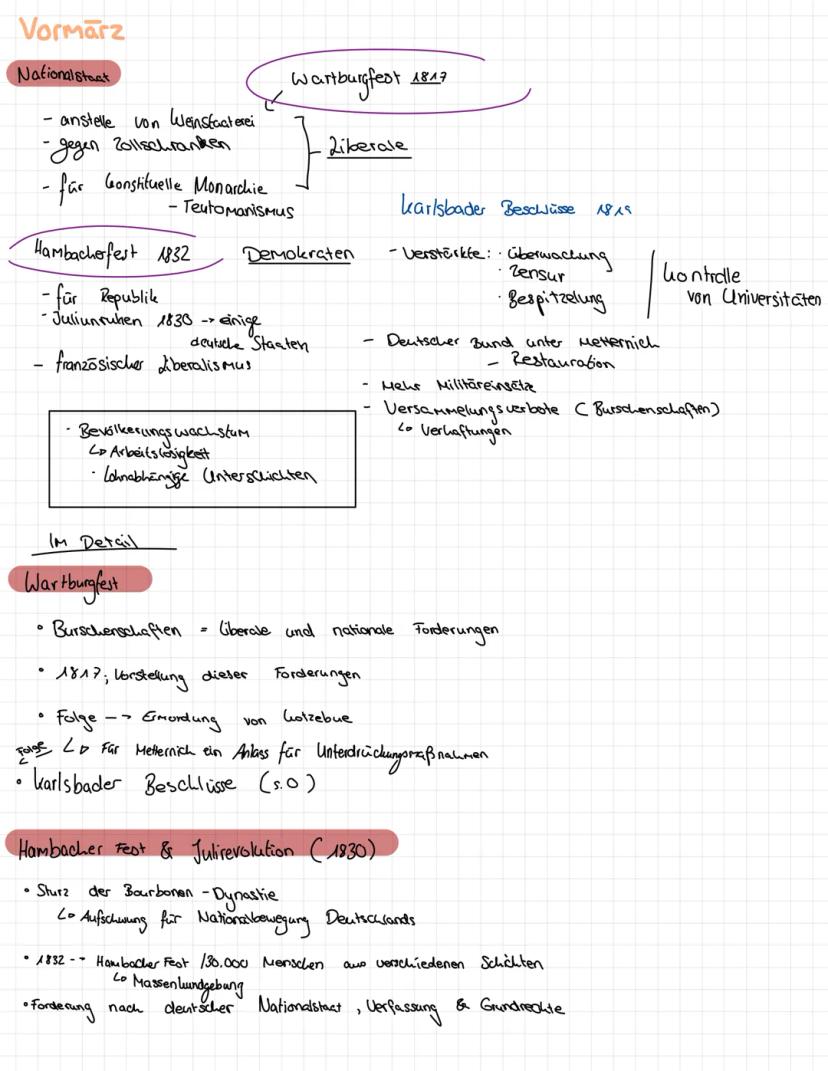 Vormärz
Nationalstaat
Wartburgfest 1817
- anstelle von Kleinstaaterei
- gegen Zollschranken
Liberale
- für konstituelle Monarchie
- Teutomanismus
Karlsbader Beschlüsse 1819
Hambacherfest 1832
Demokraten
- für Republik
- Juliunruhen 1830 -> einige
deutsche Staaten
- französischer Liberalismus
- Verstärkte: · Überwachung
· Zensur
· Bespitzelung
Kontrolle
von Universitäten
- Deutscher Bund unter Metternich
- Restauration
- Mehr Militäreinsätze
- Versammelungsverbote (Burschenschaften)
↳ Verhaftungen
· Bevölkerungswachstum
↳ Arbeitslosigkeit
· Lohnabhängige Unterschichten
Im Detail
Wartburgfest
• Burschenschaften = liberale und nationale Forderungen
• 1817; Vorstellung dieser Forderungen
• Folge --> Ermordung von Kotzebue
Folge ↳ Für Metternich ein Anlass für Unterdrückungsmaßnahmen
• Karlsbader Beschlüsse (s.O)
Hambacher Fest & Julirevolution (1830)
• Sturz der Bourbonen - Dynastie
↳ Aufschwung für Nationalbewegung Deutschlands
• 1832 -- Hambacher Fest /30.000 Menschen aus verschiedenen Schichten
↳ Massenkundgebung
• Forderung nach deutscher Nationalstaat, Verfassung & Grundrechte